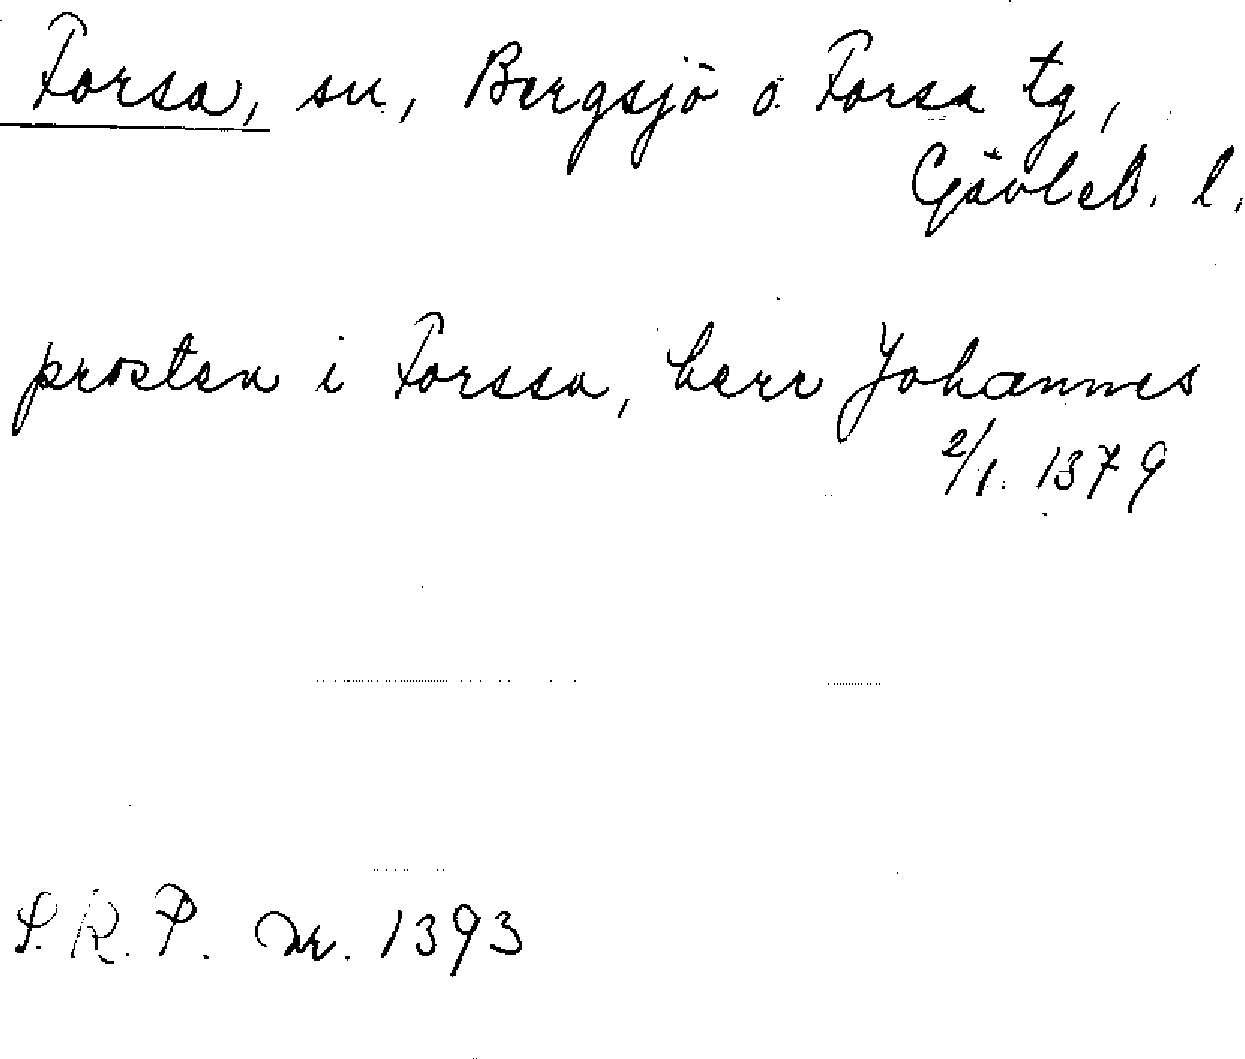 Forsa, sn, Bergsjö o Forsa tg,
Gävleb. l.
prosten i Forssa, herr Johannes
2/1. 1379
S.R.P. nr. 1393